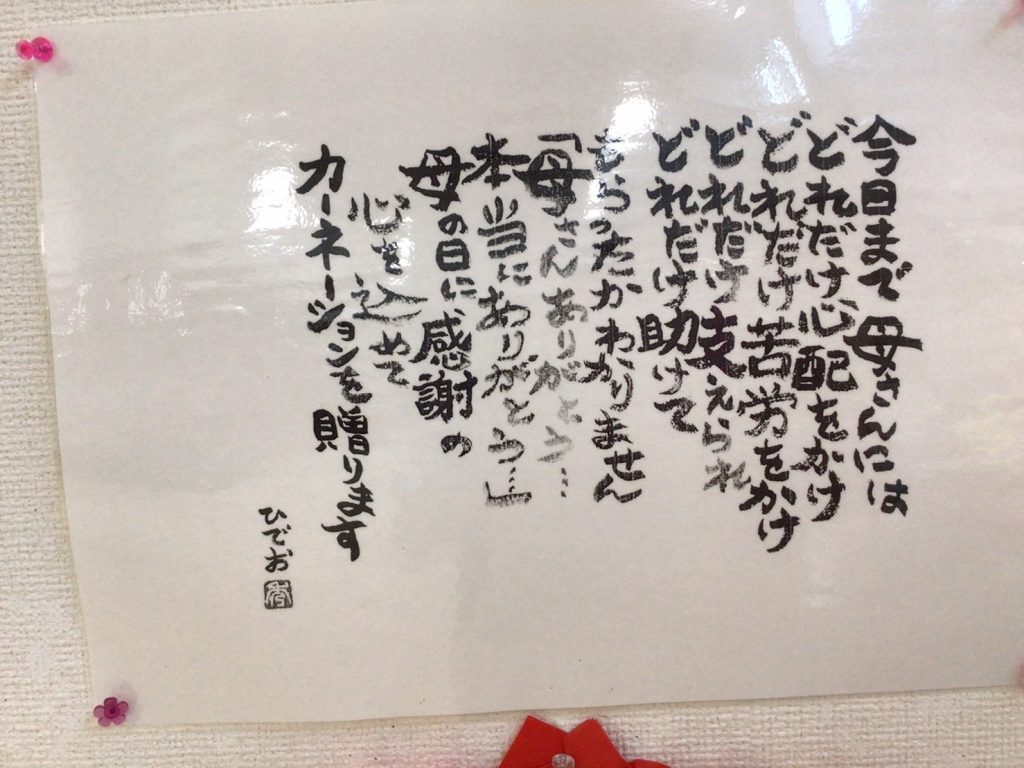 今日まで母さんには
どれだけ心配をかけ
どれだけ苦労をかけ
どれだけ支えられ
どれだけ助けて
もらったかわかりません
「母さんありがとう…
本当にありがとう…」
母の日に感謝の
心を込めて
カーネーションを贈ります
ひでお